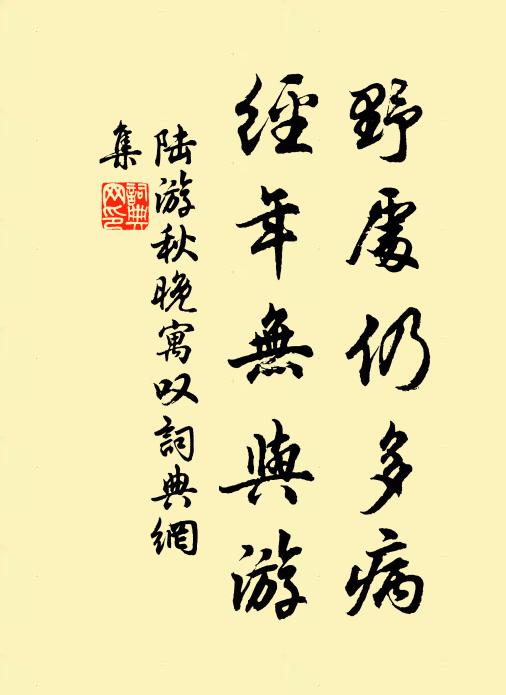 野處仍多病
經年無與游
陸游秋晚寓叹詞典網
集
詞典网印